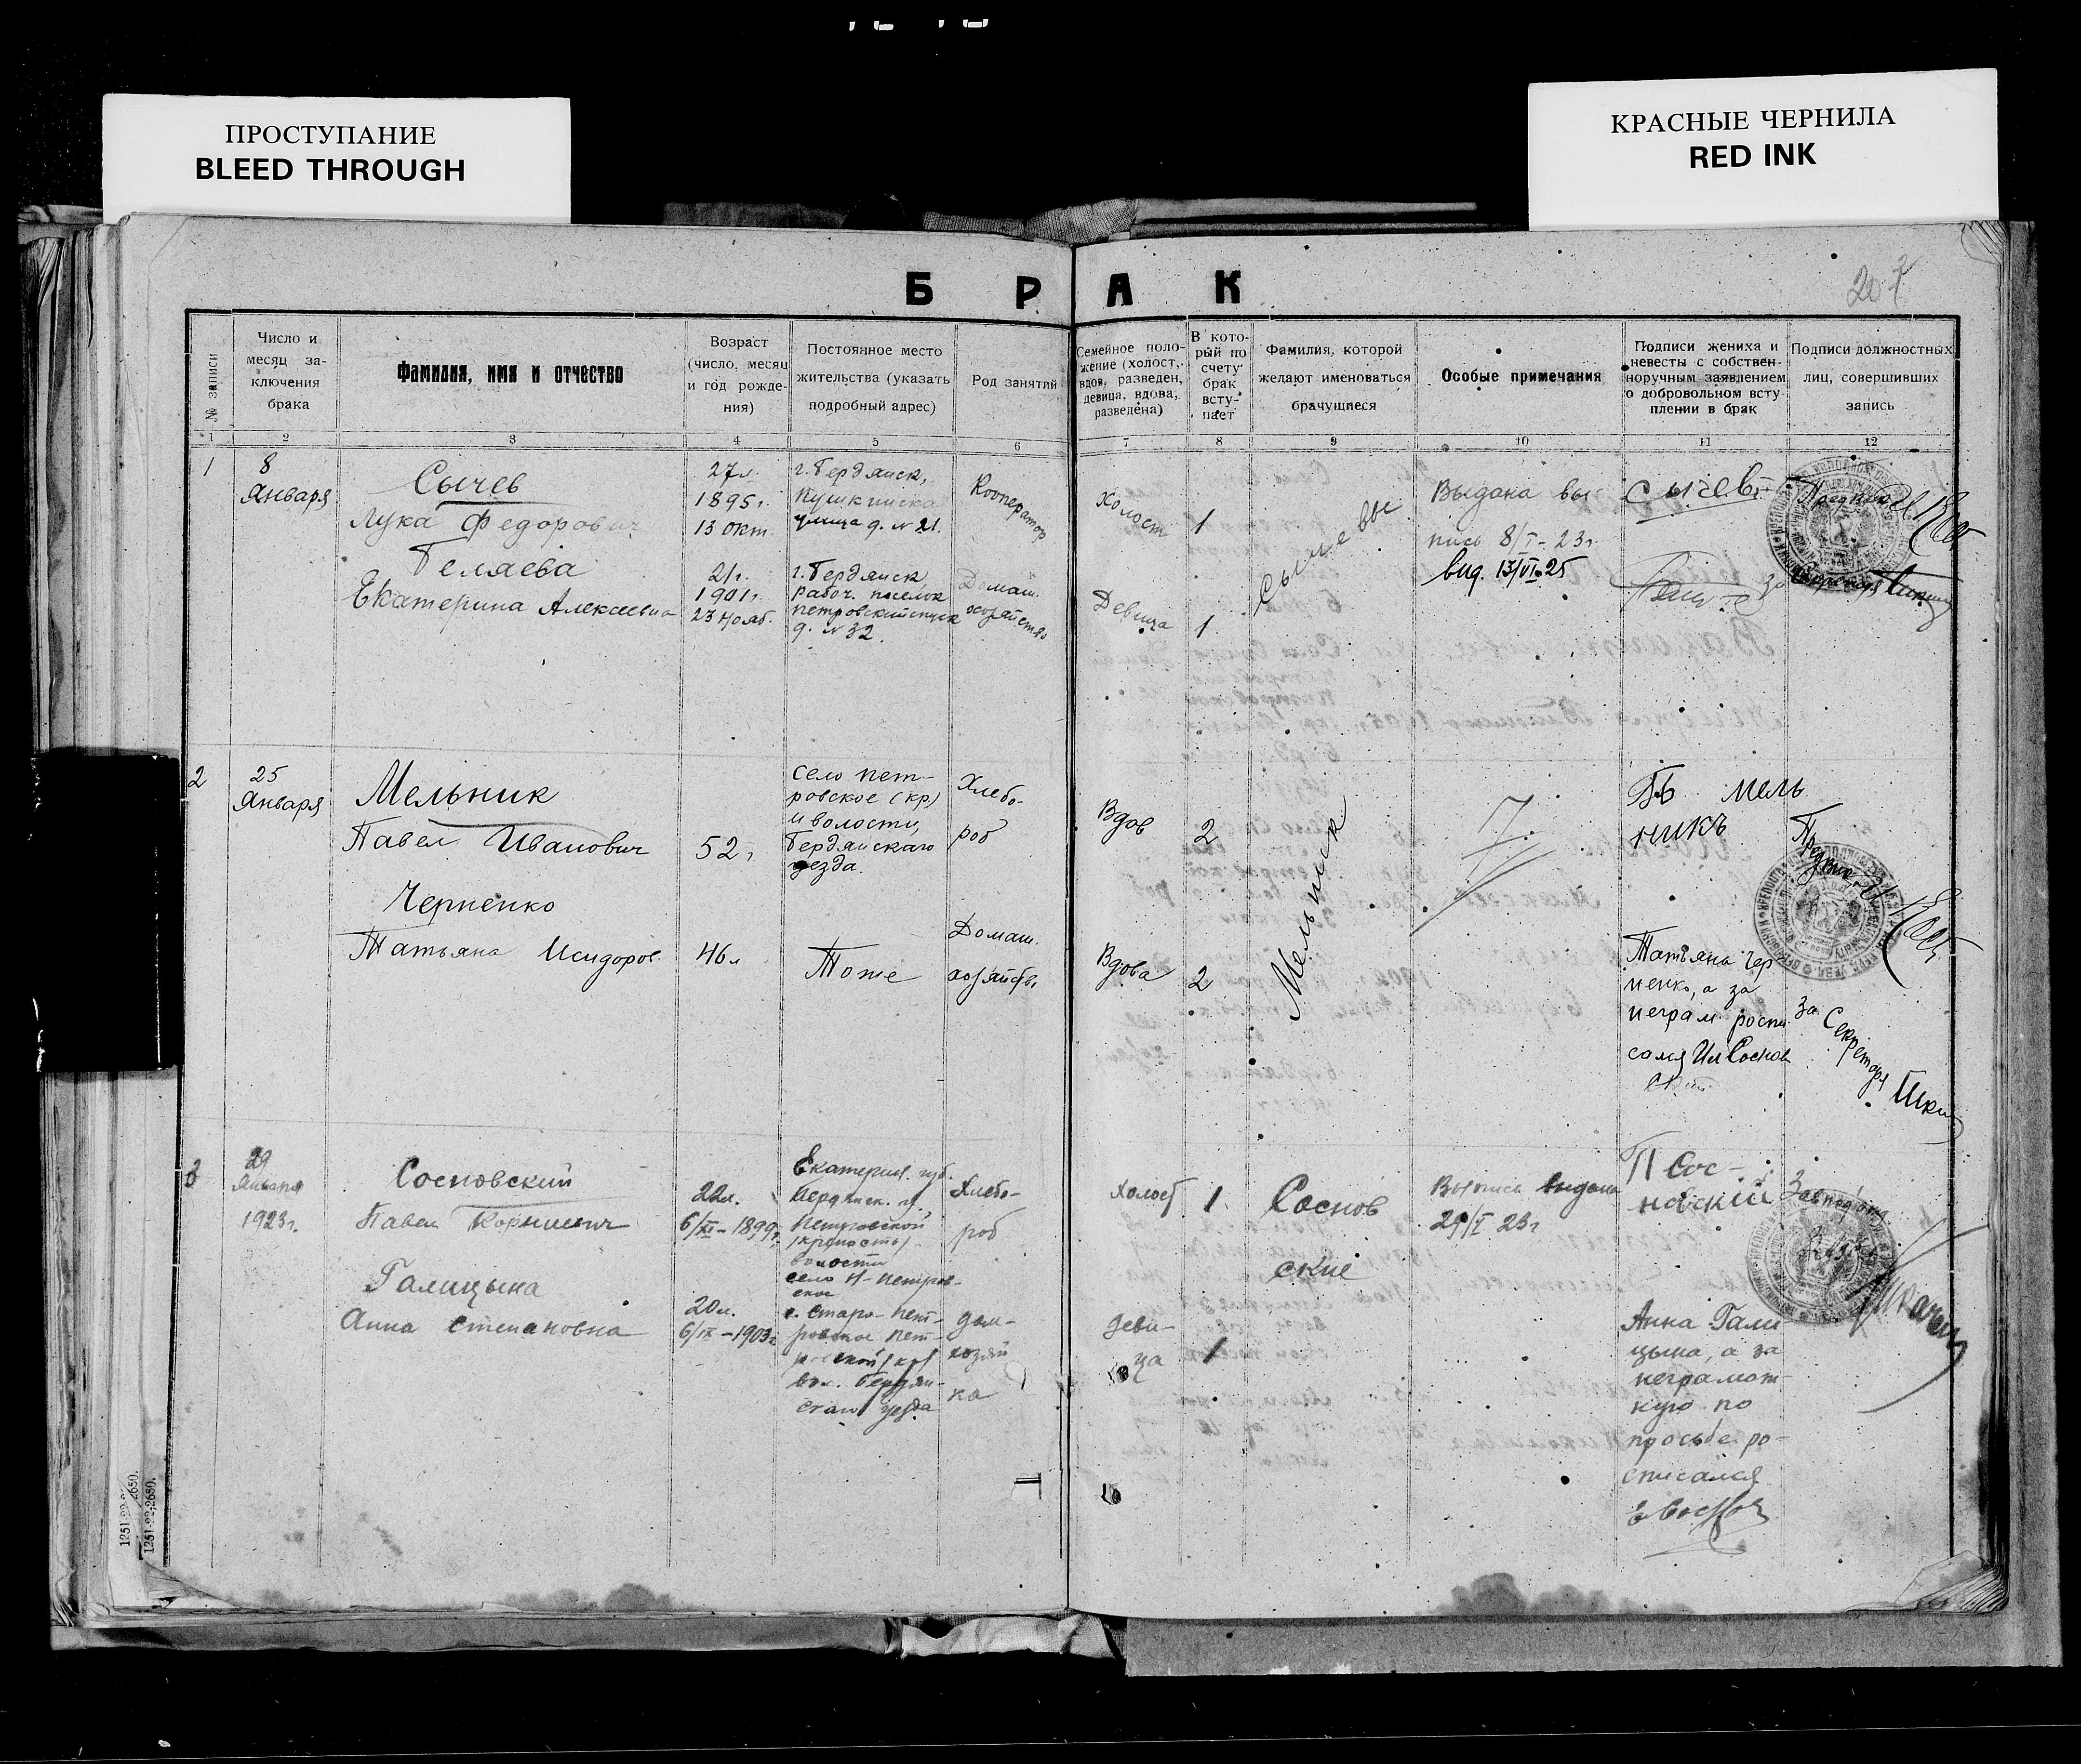 ПРОСТУПАНИЕ
BLEED THROUGH
КРАСНЫЕ ЧЕРНИЛА
RED INK
207
БРАК
№ записи
Число и
месяц за-
ключения
брака
Фамилия, имя и отчество
Возраст
(число, месяц
и год рожде-
ния)
Постоянное место
жительства (указать
подробный адрес)
Род занятий
Семейное поло-
жение (холост,
вдов, разведен,
девица, вдова,
разведена)
В кото-
рый по
счету
брак
всту-
пает
Фамилия, которой
желают именоваться
брачущиеся
Особые примечания
Подписи жениха и
невесты с собствен-
норучным заявлением
о добровольном всту
плении в брак
Подписи должностных
лиц, совершивших
запись
1 2 3 4 5 6 7 8 9 10 11 12
1
8
Января
Сычев
Лука Федорович
Беляева
Екатерина Алексеевна
27л.
1895г.
13 окт.
21г.
1901г.
23 Нояб.
г. Бердянск,
Пушкинска
улица д. № 21.
г. Бердянск
рабоч. поселок
д. № 32.
Кооператор
Домаш.
хозяйство
Холост
Девица
1
1
Сычевы
Выдана вы
пись 8/I - 23г.
выд. 13/VI-25
Сычевъ
за Секретаря
2
25
Января
Мельник
Павел Иванович
Черненко
Татьяна Исидоров.
52г.
46л
село Пет-
ровское (кр)
и волости,
Бердянскаго
уезда.
Тоже
Хлебо-
роб
Домаш.
хозяйств.
Вдов
Вдова
2
2
Мельник
Мель
никъ
Татьяна Чер
ненко, а за
неграм. роспи
за Секретаря
3
29
Января
1923г.
Сосновский
Павел Корнеевич
Галицына
Анна Степановна
22л.
6/XI-1899г.
20л.
6/IX-1903г.
Екатерин. губ.
Бердянск. у.
Петровской
/крепость/
волости
село Н-Петров-
ское
с. Старо-Пет-
ровское Пет-
ровской/кр/
вол. Бердян-
скаго уезда
Хлебо-
роб
дом-
хозяй
ка
Холост
деви-
ца
1
1
Соснов
ские
Выпись выдана
29/I 23г
П Сос-
новский
Анна Гали-
цына, а за
неграмот-
ную по
просьбе ро-
списался
1251-22-2650.
1251-22-2650.